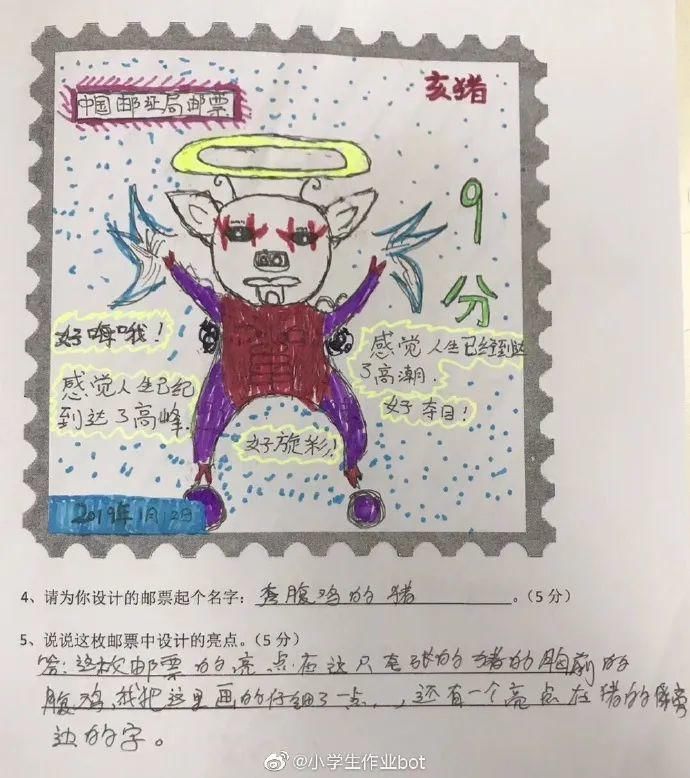 亥猪
中国邮政局邮票
9
分
好嗨哦！
感觉人生已经
到达了高峰.
感觉人生已经到达
了高潮.
好夺目！
好旋彩！
2019年1月12日
4、请为你设计的邮票起个名字：套腹鸡的猪。（5 分）
5、说说这枚邮票中设计的亮点。（5 分）
答：这枚邮票的亮点在这只夸张的猪的胸前的
腹鸡，我把这里画的仔细了一点，，还有一个亮点在猪的
边的字。
@小学生作业bot